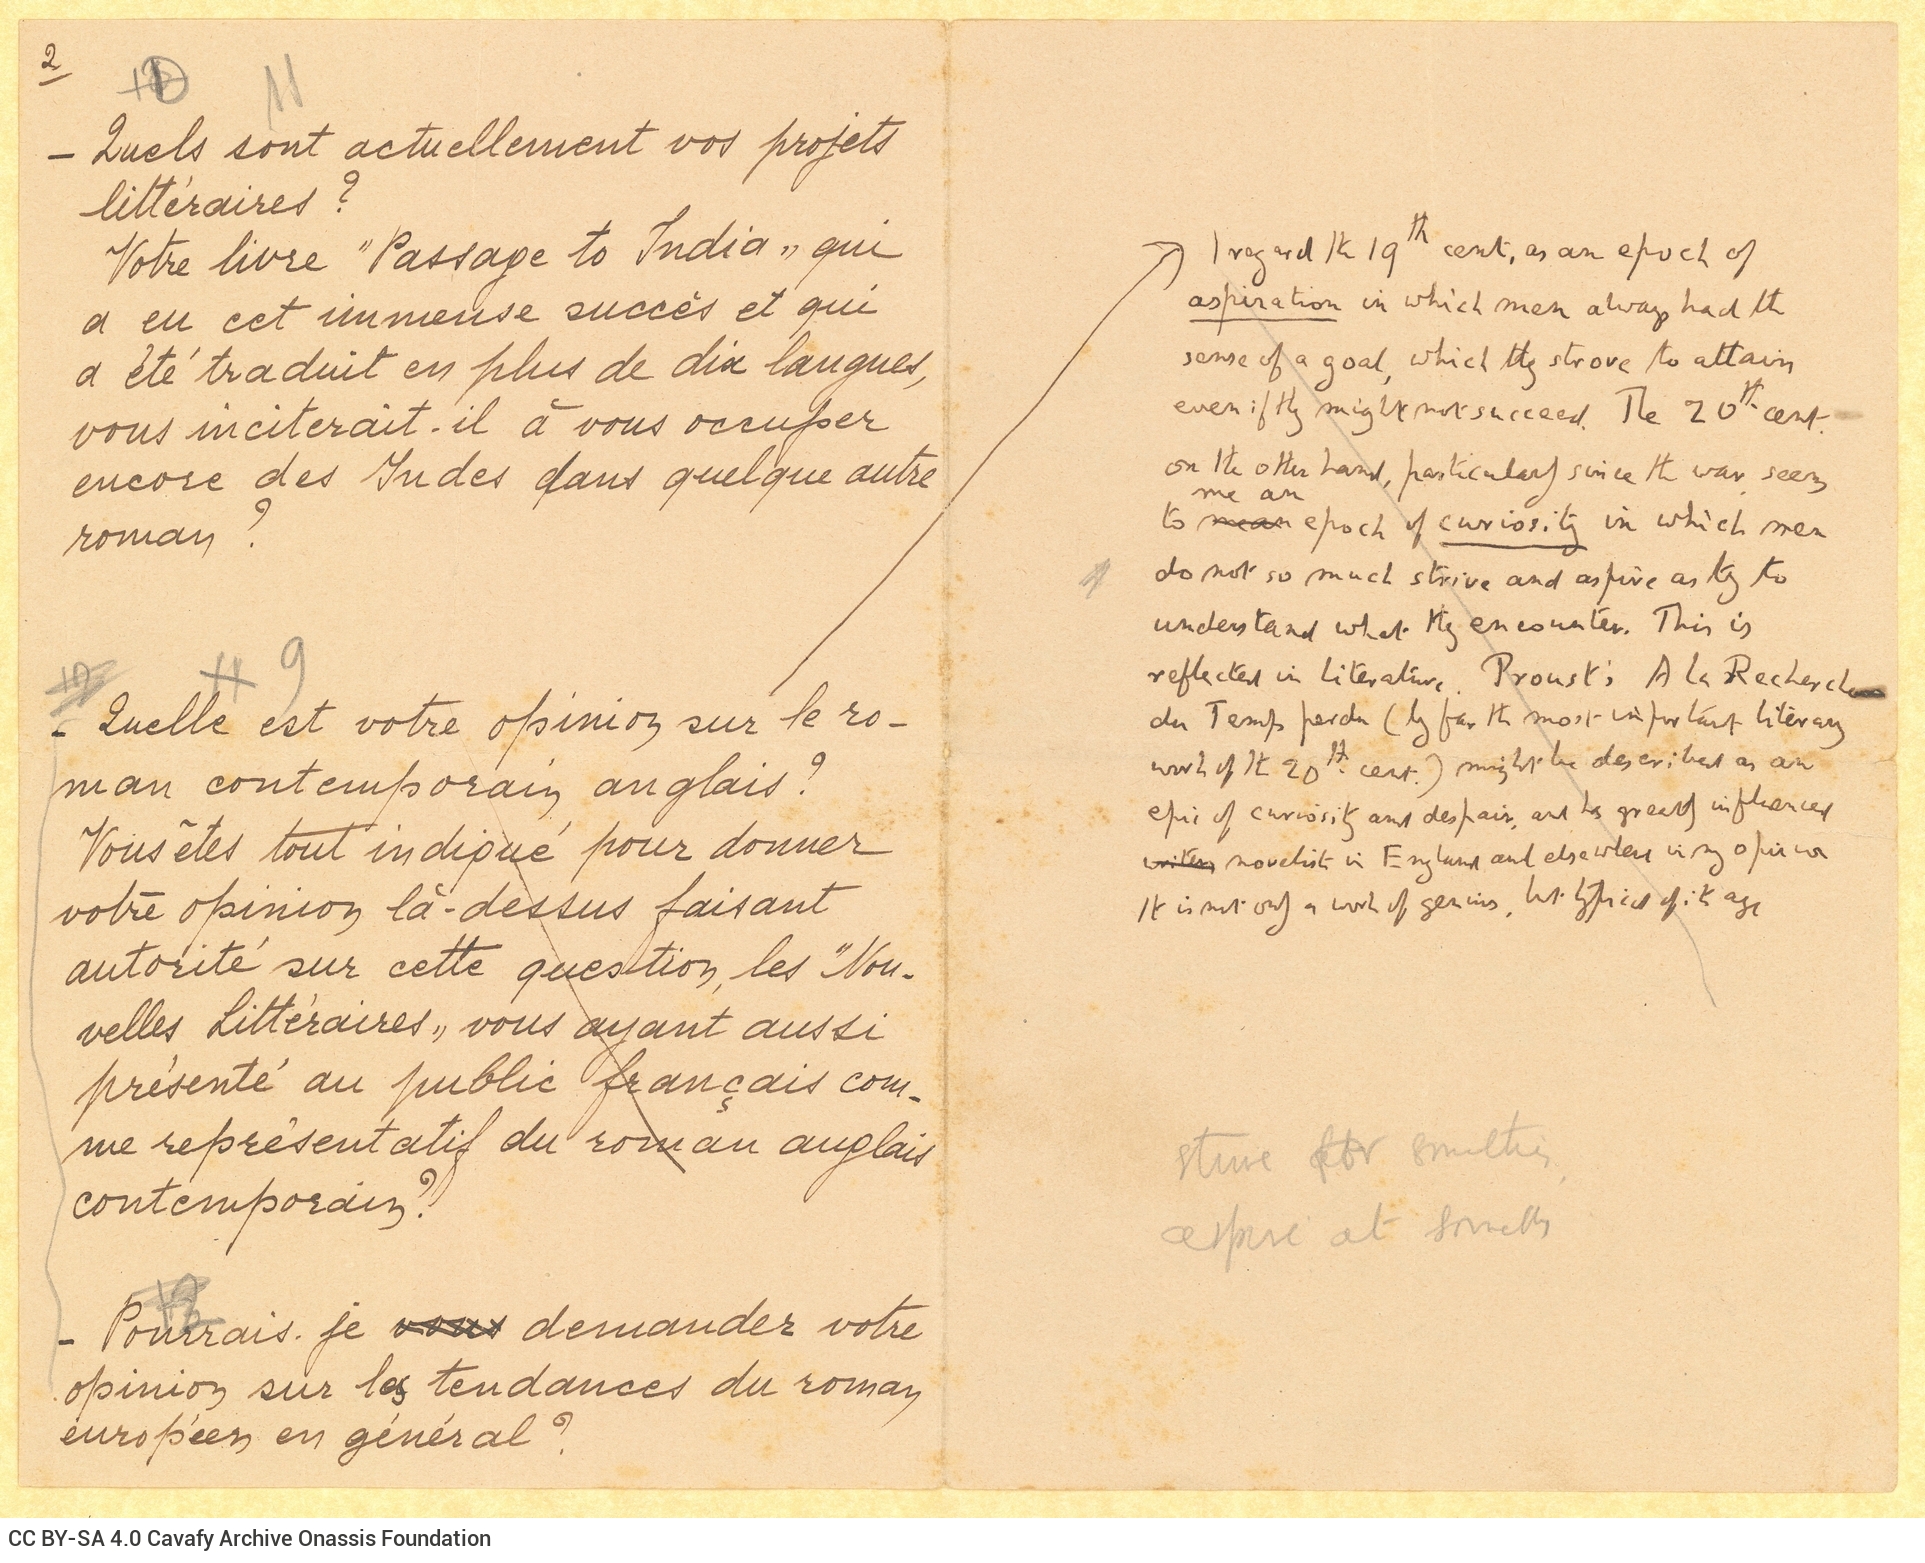 2
11
– Quels sont actuellement vos projets
littéraires ?
Votre livre "Passage to India„ qui
a eu cet immense succès et qui
a été traduit en plus de dix langues,
vous inciterait-il à vous occuper
encore des Indes dans quelque autre
roman ?
11 9
– Quelle est votre opinion sur le ro-
man contemporain anglais ?
Vous êtes tout indiqué pour donner
votre opinion là-dessus faisant
autorité sur cette question, les "Nou-
velles Littéraires„ vous ayant aussi
présenté au public français com-
me représentatif du roman anglais
contemporain ?
– Pourrais-je vous demander votre
opinion sur les tendances du roman
européen en général ?
I regard the 19th cent. as an epoch of
aspiration in which men always had the
sense of a goal, which they strove to attain
even if they might not succeed. The 20th cent.
on the other hand, particularly since the war, seems
me an
to mean epoch of curiosity in which men
do not so much strive and aspire as try to
understand what they encounter. This is
reflected in literature. Proust's A la Recherche
du Temps perdu (by far the most important literary
work of the 20th cent.) might be described as an
epic of curiosity and despair, and has greatly influenced
writers novelists in England and elsewhere in my opinion
It is not only a work of genius, but typical of its age
strive for something,
aspire at something